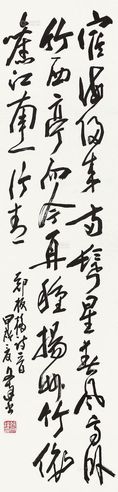 宦海归来两鬓星春风高卧
竹西亭而今再种扬州竹依
旧江南一片青
郑板桥诗一首
甲戌之夏